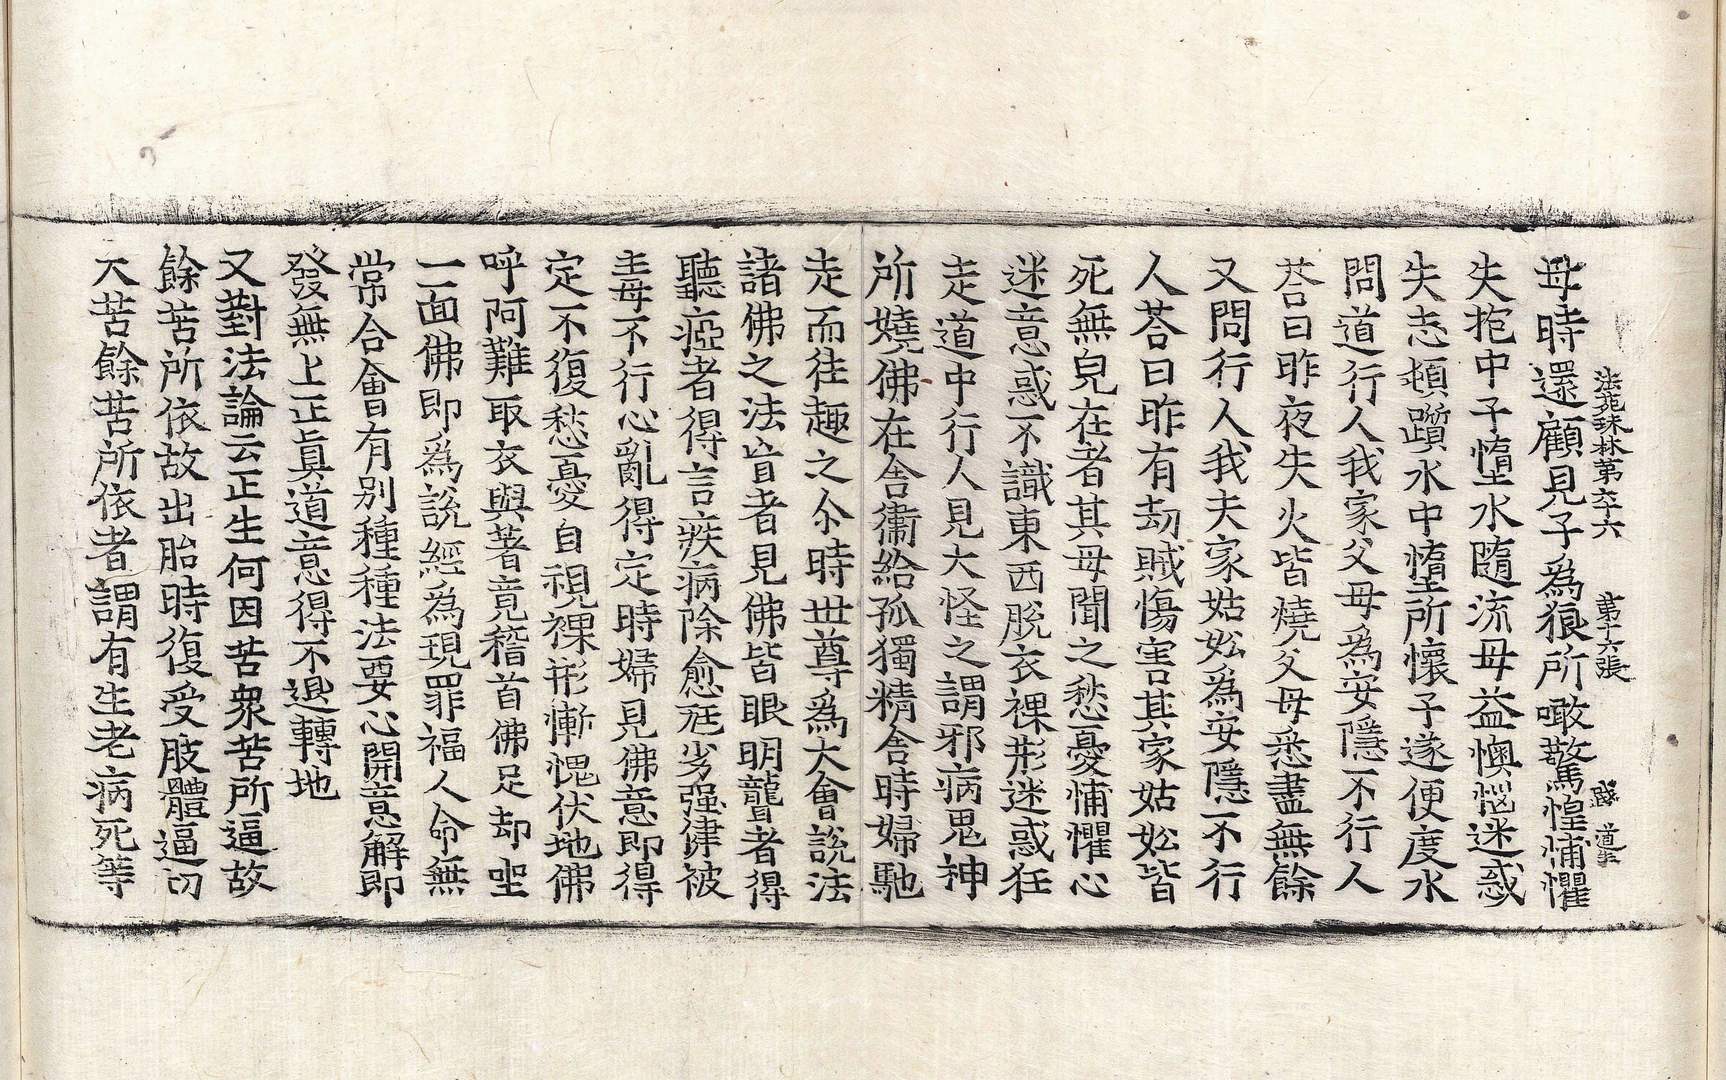 法苑珠林第六十六 第十六張 踐 道生
母時還顧見子為狼所噉驚惶怖懼
失抱中子墮水隨流母益懊惱迷惑
失志頓躓水中墮所懷子遂便度水
問道行人我家父母為安隱不行人
荅曰昨夜失火皆燒父母悉盡無餘
又問行人我夫家姑妐為安隱不行
人荅曰昨有劫賊傷害其家姑妐皆
死無皃在者其母聞之愁憂怖懼心
迷意惑不識東西脫衣裸形迷惑狂
走道中行人見大怪之謂邪病鬼神
所嬈佛在舍衛給孤獨精舍時婦馳
走而往趣之尒時世尊為大會說法
諸佛之法盲者見佛皆眼明聾者得
聽瘂者得言疾病除愈尪劣强健被
毒毒不行心亂得定時婦見佛意即得
定不復愁憂自視裸形慚愧伏地佛
呼阿難取衣與著竟稽首佛足却坐
一面佛即為說經為現罪福人命無
常合會有別種種法要心開意解即
發無上正真道意得不退轉地
又對法論云正生何因苦衆苦所逼故
餘苦所依故出胎時復受肢體逼切
大苦餘苦所依者謂有生老病死等